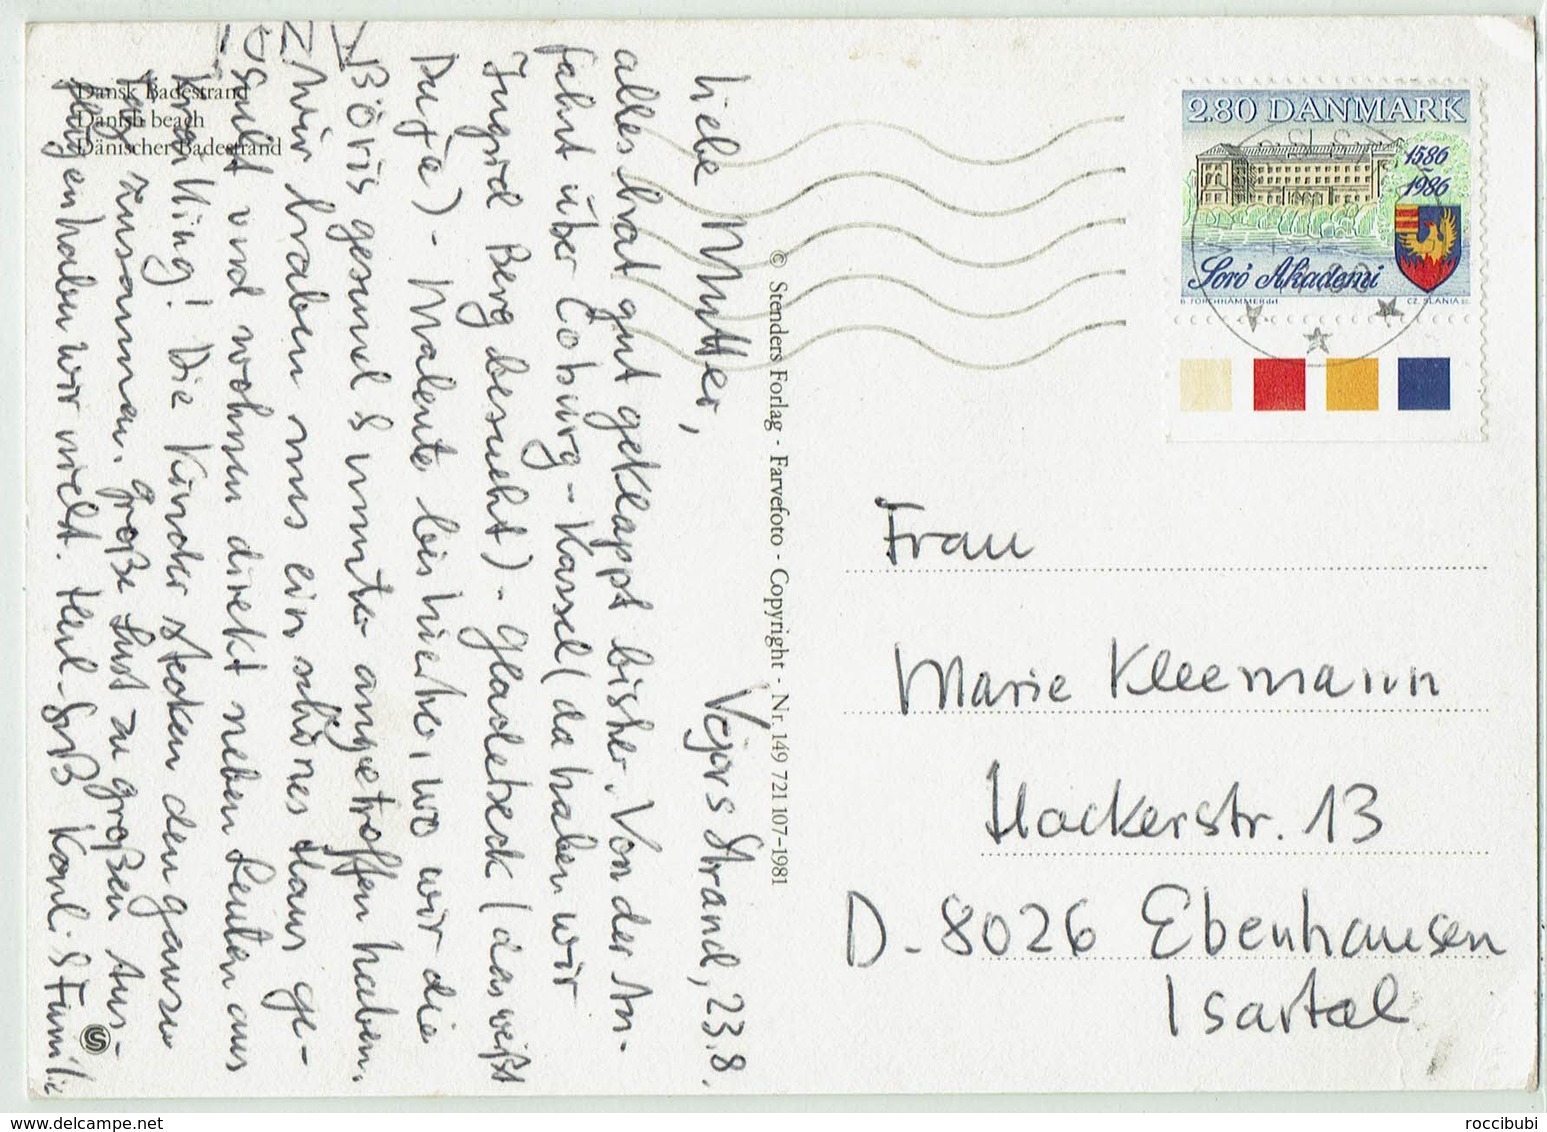 Dansk Badestrand
Danish beach
Dänischer Badestrand
Vejers Strand, 23.8.
Liebe Mutter,
alles hat gut geklappt bisher. Von der An-
fahrt über Coburg - Kassel (da haben wir
Ingrid Berg besucht) - Gladebeck (das weißt
Du ja) - Malente bis hierher, wo wir die
Böris gesund & munter angetroffen haben.
Wir haben uns ein schönes Haus ge-
sucht und wohnen direkt neben Leuten aus
Krailling! Die Kinder stecken den ganzen
Tag zusammen, große Lust zu großen Aus-
flügen haben wir nicht. Herzl. Gruß Karl & Familie
© Stenders Forlag - Farvefoto - Copyright - Nr. 149 721 107-1981
2.80 DANMARK
1586
1986
Sorö Akademi
B. FORCHHAMMER del.
CZ. SLANIA sc.
Frau
Marie Kleemann
Hackerstr. 13
D-8026 Ebenhausen
Isartal
roccibubi